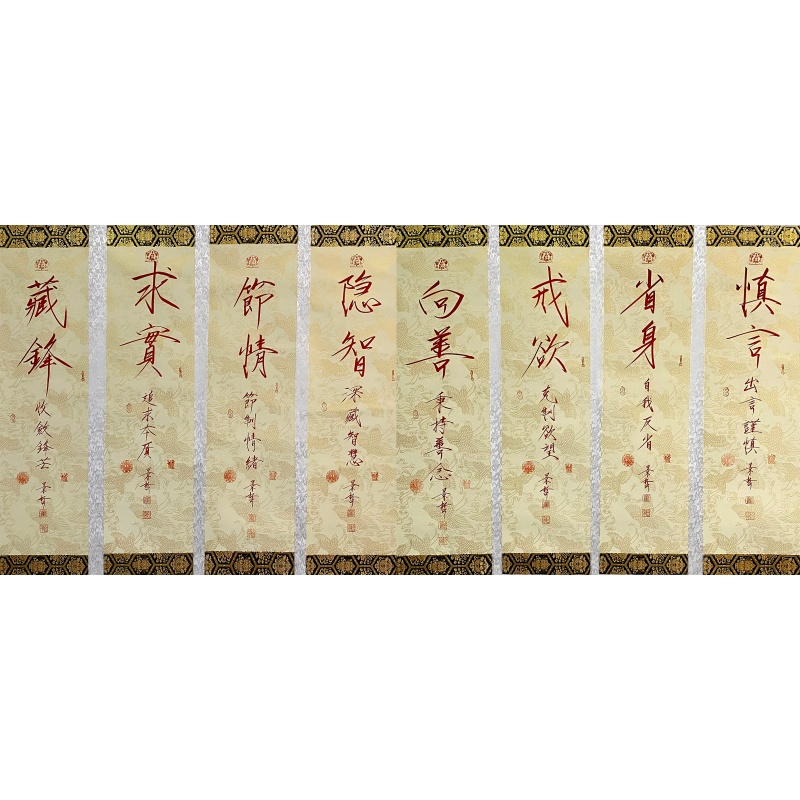 慎言
出言謹慎
省身
自我反省
戒欲
克制欲望
向善
秉持善念
隐智
深藏智慧
節情
節制情緒
求實
追求本质
藏鋒
收敛鋒芒